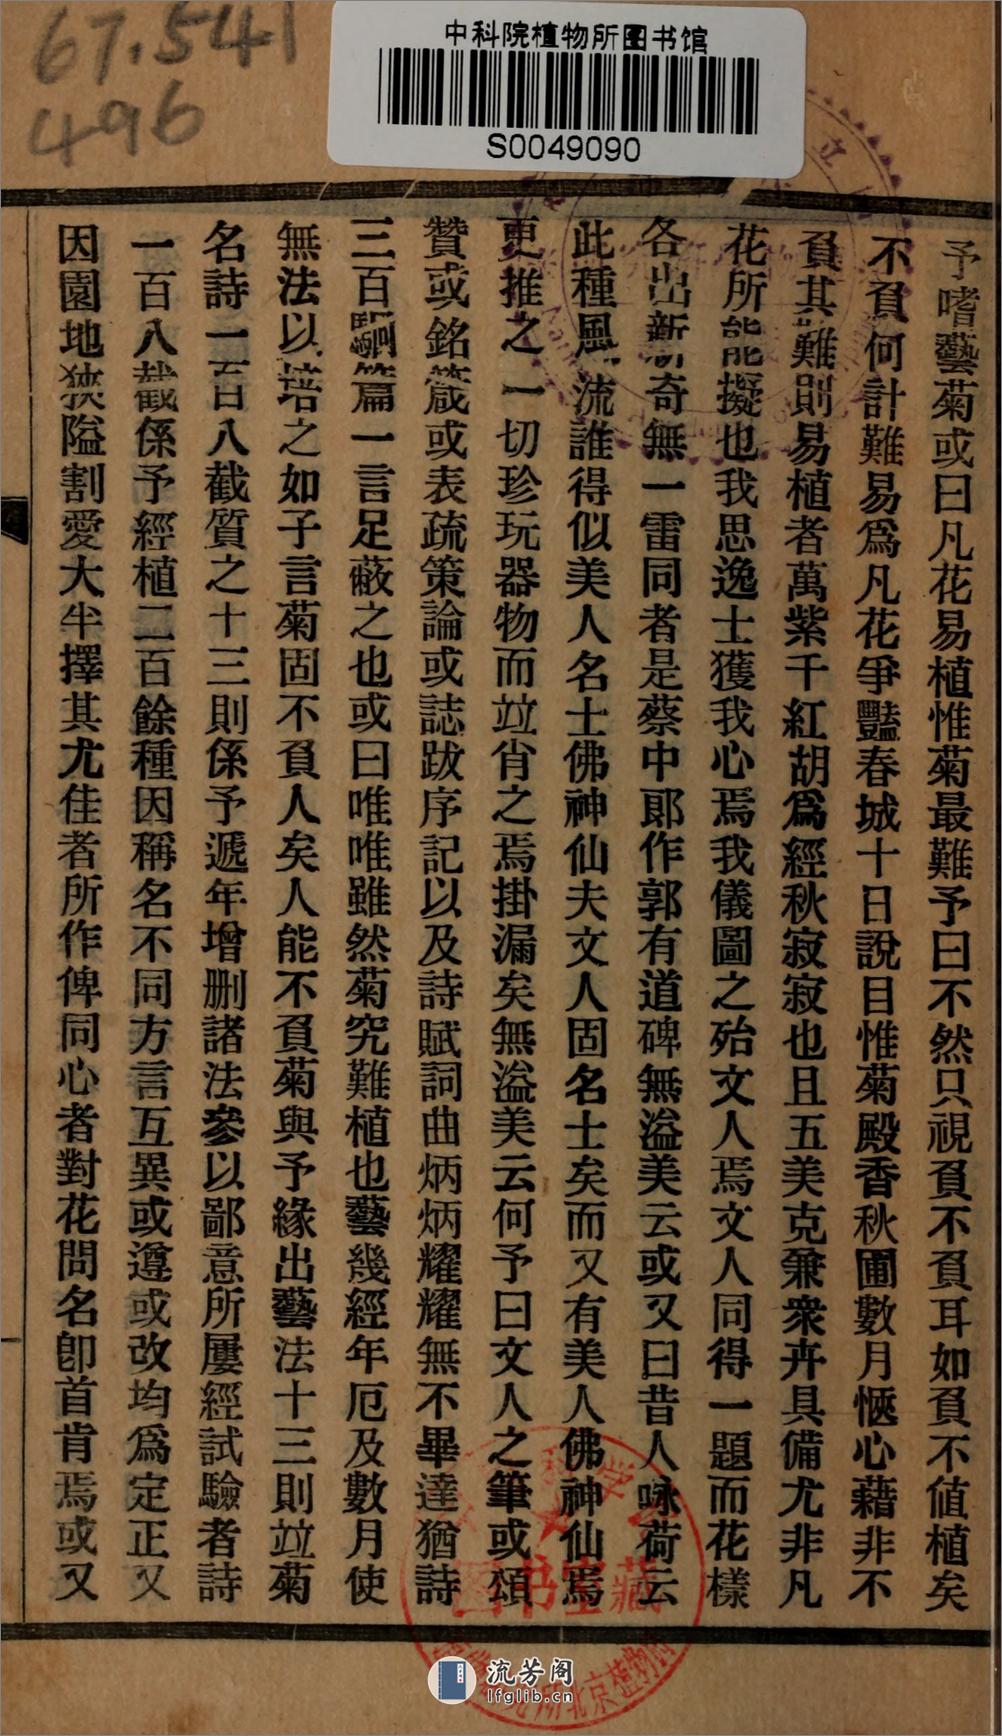 67.541
496
中科院植物所图书馆
S0049090
予嗜藝菊或曰凡花易植惟菊最難予曰不然只視負不負耳如負不值植矣
不負何計難易爲凡花爭豔春城十日說目惟菊殿香秋圃數月愜心藉非不
負其難則易植者萬紫千紅胡爲經秋寂寂也且五美克兼衆卉具備尤非凡
花所能擬也我思逸士獲我心焉我儀圖之殆文人焉文人同得一題而花樣
各出新奇無一雷同者是蔡中郎作郭有道碑無溢美云或又曰昔人咏荷云
此種風流誰得似美人名士佛神仙夫文人固名士矣而又有美人佛神仙焉
更推之一切珍玩器物而竝肖之焉掛漏矣無溢美云何予曰文人之筆或頌
贊或銘箴或表疏策論或誌跋序記以及詩賦詞曲炳炳耀耀無不畢達猶詩
三百篇一言足蔽之也或曰唯唯雖然菊究難植也藝幾經年厄及數月使
無法以培之如子言菊固不負人矣人能不負菊與予緣出藝法十三則竝菊
名詩一百八截質之十三則係予遞年增删諸法參以鄙意所屢經試驗者詩
一百八截係予經植二百餘種因稱名不同方言互異或遵或改均爲定正又
因園地狹隘割愛大半擇其尤佳者所作俾同心者對花問名卽首肯焉或又
图书室藏
北京植物园
流芳阁
lfglib.cn